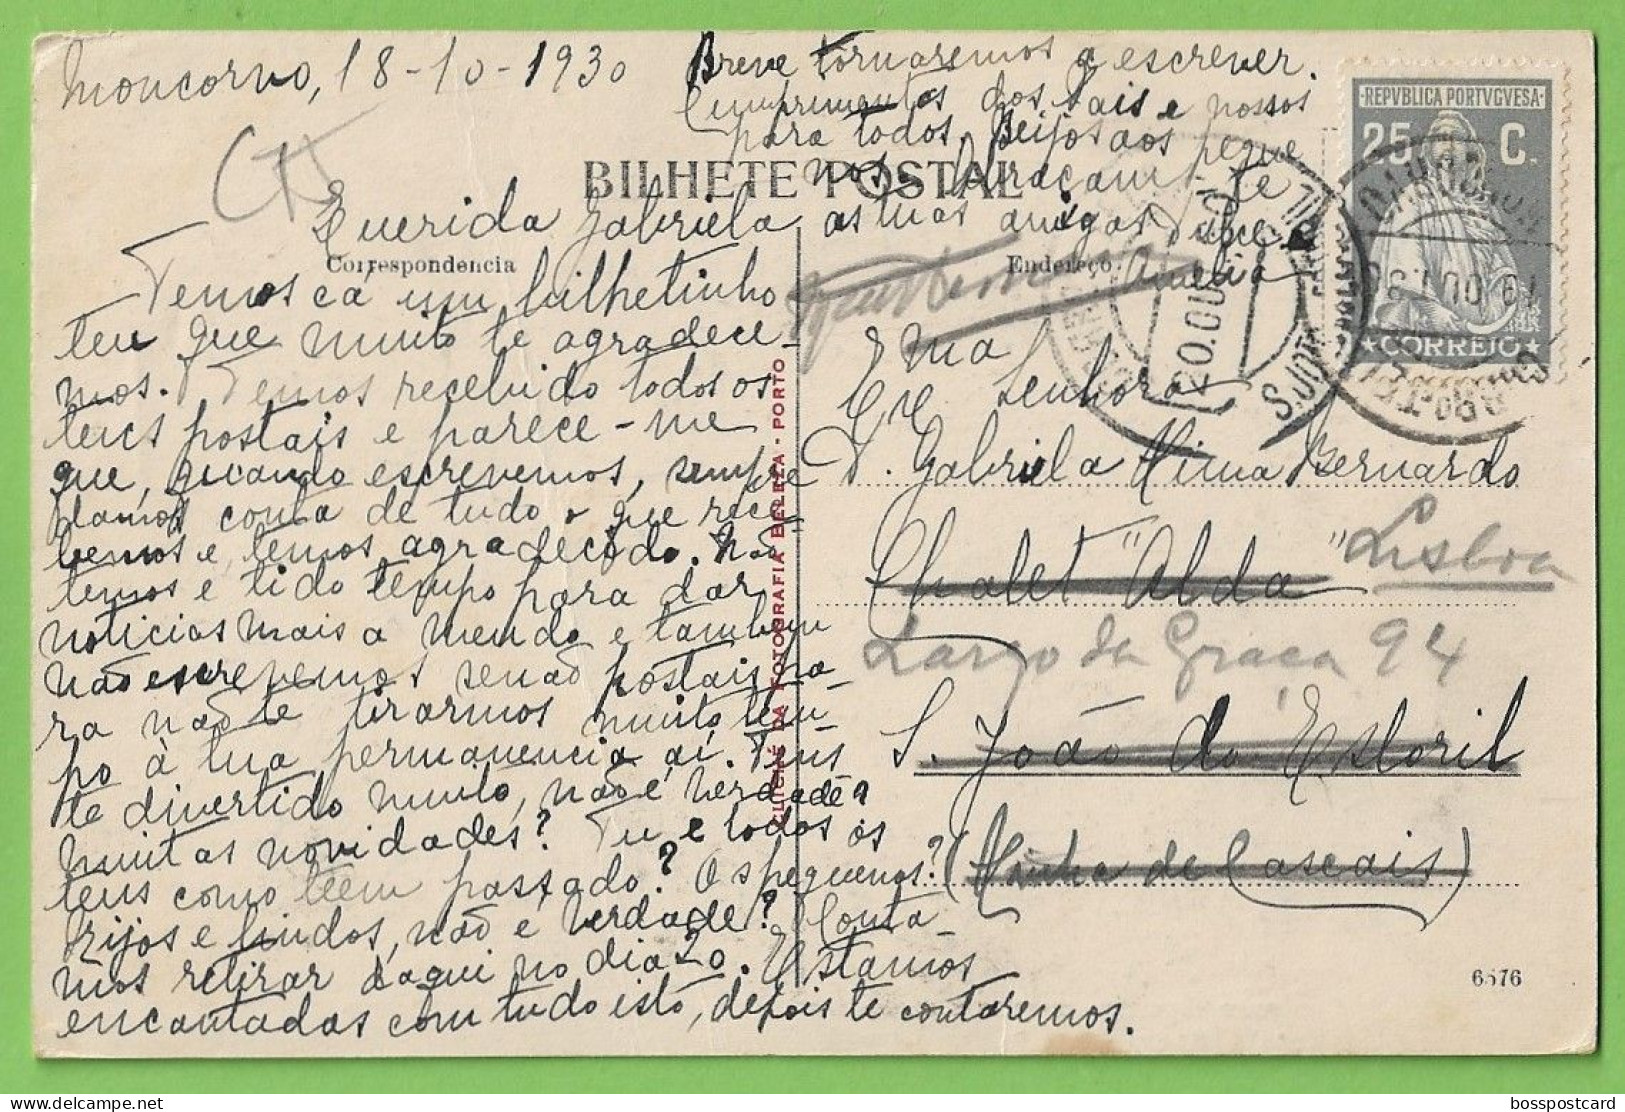 Moncorvo, 18-10-1930
Breve tornaremos a escrever.
Cumprimentos dos Pais e nossos
para todos. Beijos aos peque
nos. Abraçam-te
as tuas amigas Dulce e
Amelia
BILHETE POSTAL
Correspondencia
Endereço
Querida Gabriela
Temos cá um bilhetinho
teu que muito te agradece-
mos. Temos recebido todos os
teus postais e parece-me
que, quando escrevemos, sempre
damos conta de tudo o que rece-
bemos e temos agradecido. Não
temos e tido tempo para dar
noticias mais a mendo e tambem
não escrevemos senão postais pa-
ra não te tirarmos muito tem-
po à tua permanencia aí. Tens
te divertido muito, não é verdade?
muitas novidades? Tu e todos os
teus como teem passado? Os pequenos?
Rijos e lindos, não é verdade? Conta-
mos retirar daqui no dia 20. Estamos
encantadas com tudo isto, depois te contaremos.
CLICHÉ DA FOTOGRAFIA BELEZA - PORTO
Ema
Senhora
D. Gabriela Bernardo
Chalet "Alda"
Lisboa
Largo da Graça 94
S. João do Estoril
(Linha de Cascais)
6576
·REPVBLICA PORTVGVESA·
25 C.
CORREIO
20.OUT
S. JOÃO
bosspostcard